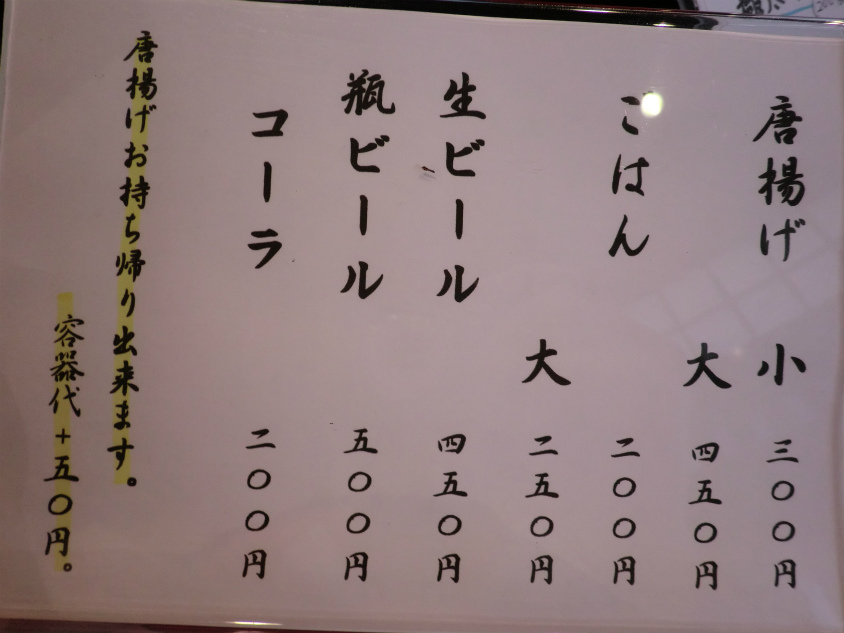 唐揚げ 小 三〇〇円
大 四五〇円
ごはん 二〇〇円
大 二五〇円
生ビール 四五〇円
瓶ビール 五〇〇円
コーラ 二〇〇円
唐揚げお持ち帰り出来ます。
容器代+五〇円。